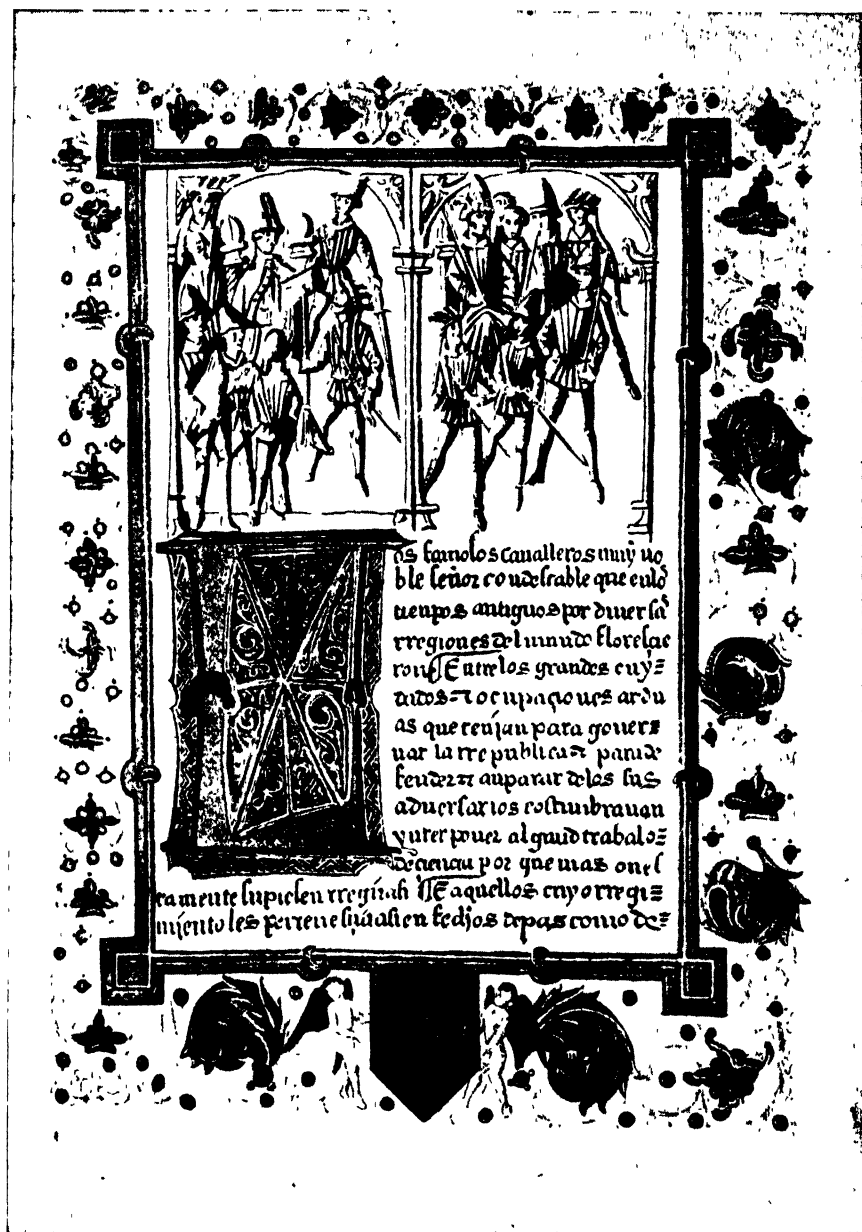 os famosos cavalleros muy no
ble señor condestable que en lo
tienpos antiguos por diversas
rregiones del mundo floresçie
ron Entre los grandes cuy
dados τ ocupaçiones ardu
as que tenjan para gover
nar la rrepublica τ para de
fender τ anparar de los sus
adversarios costunbravan
ynterponer algund trabaio
de çiençia por que mas ones
tamente supiesen rregir asi E aquellos cuyo rregi
mjento les pertenesçia asi en fechos de pas como de